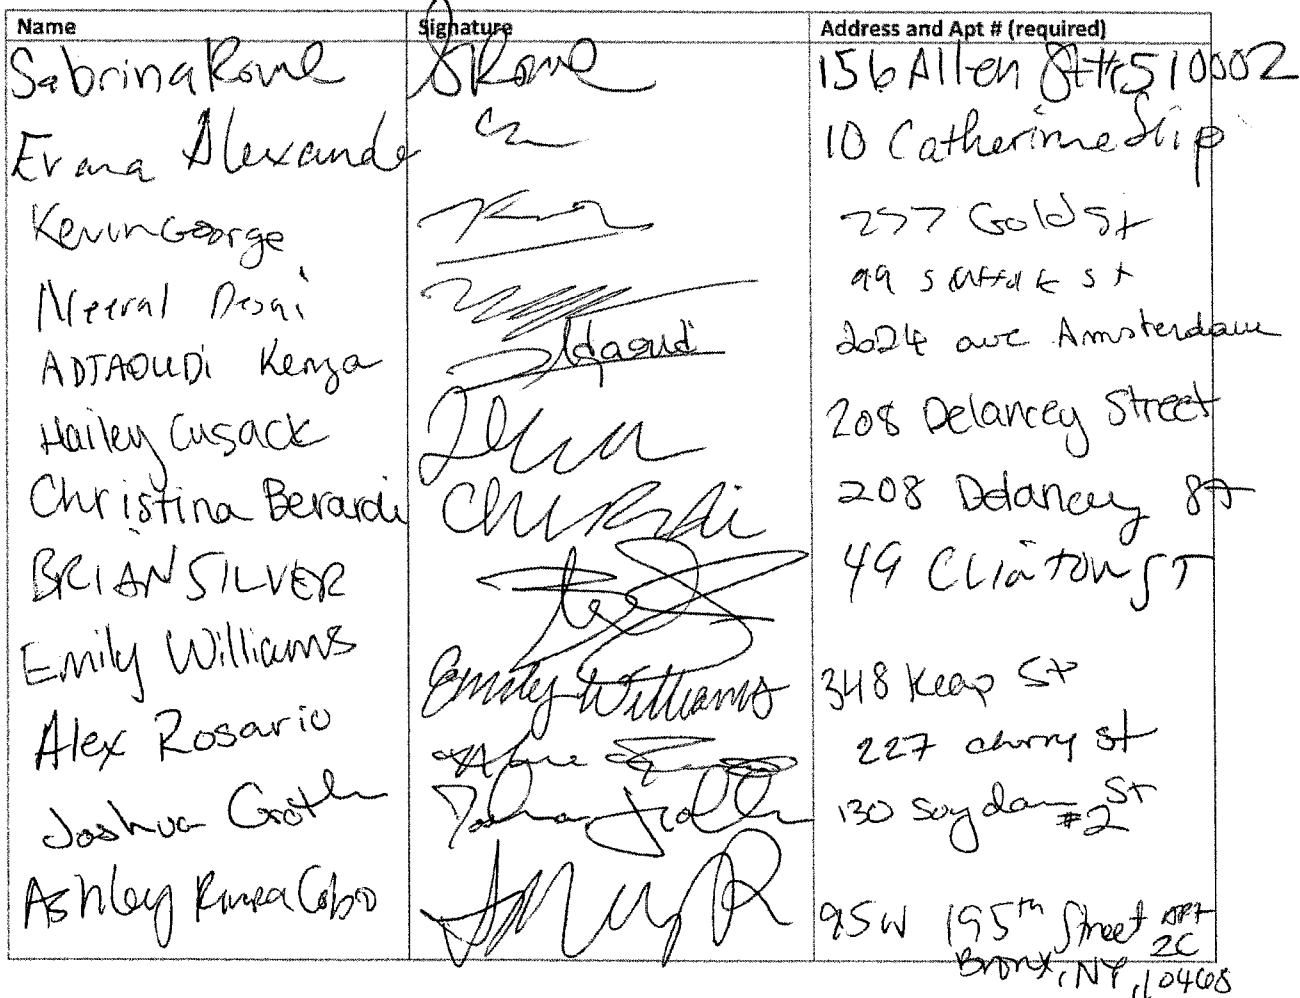 Name Signature Address and Apt # (required)
Sabrina Rowe SRowe 156 Allen St #5 10002
Evana Alexande 10 Catherine Slip
Kevin George 277 Gold St
Neeral Desai 99 Suffolk St
ADJAOUDi Kenza Adjaoudi 2024 ave Amsterdam
Hailey Cusack 208 Delancey Street
Christina Berardi 208 Delancey St
BRIAN SILVER 49 Clinton ST
Emily Williams Emily Williams 348 Keap St
Alex Rosario 227 cherry st
Joshua Groth 130 Suydam St #2
Ashley Rivera Cobo 95 W 195th Street APT 2C
Bronx, NY, 10468